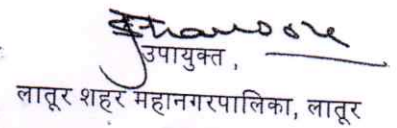 उपायुक्त ,
लातूर शहर महानगरपालिका, लातूर